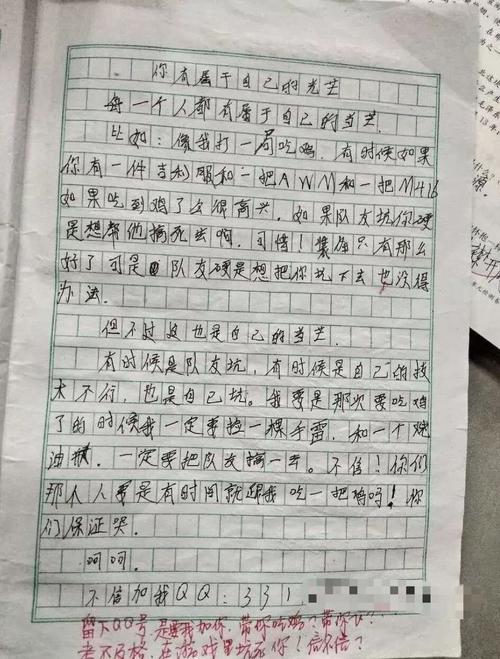 你有属于自己的光芒
每一个人都有属于自己的光芒.
比如:像我打一局吃鸡,有时候如果
你有一件吉利服和一把AWM和一把M416
如果吃到鸡了么很高兴.如果队友坑你硬
是想帮他搞死去啊.可惜!装备只有那么
好了可是队友硬是想把你坑下去也没得
办法.
但不过这也是自己的光芒.
有时候是队友坑,有时候是自己的技
术不行,也是自己坑。我要是那次要吃鸡
了的时候我一定要捡一颗手雷,和一个燃
油瓶.一定要把队友搞一去。不信!你们
那个人要是有时间就跟我吃一把鸡吗!你
们保证哭.
呵呵.
不信加我QQ:331
留下QQ号是要我加你,带你吃鸡?带你
考不及格,在游戏里坑死你!信不信?